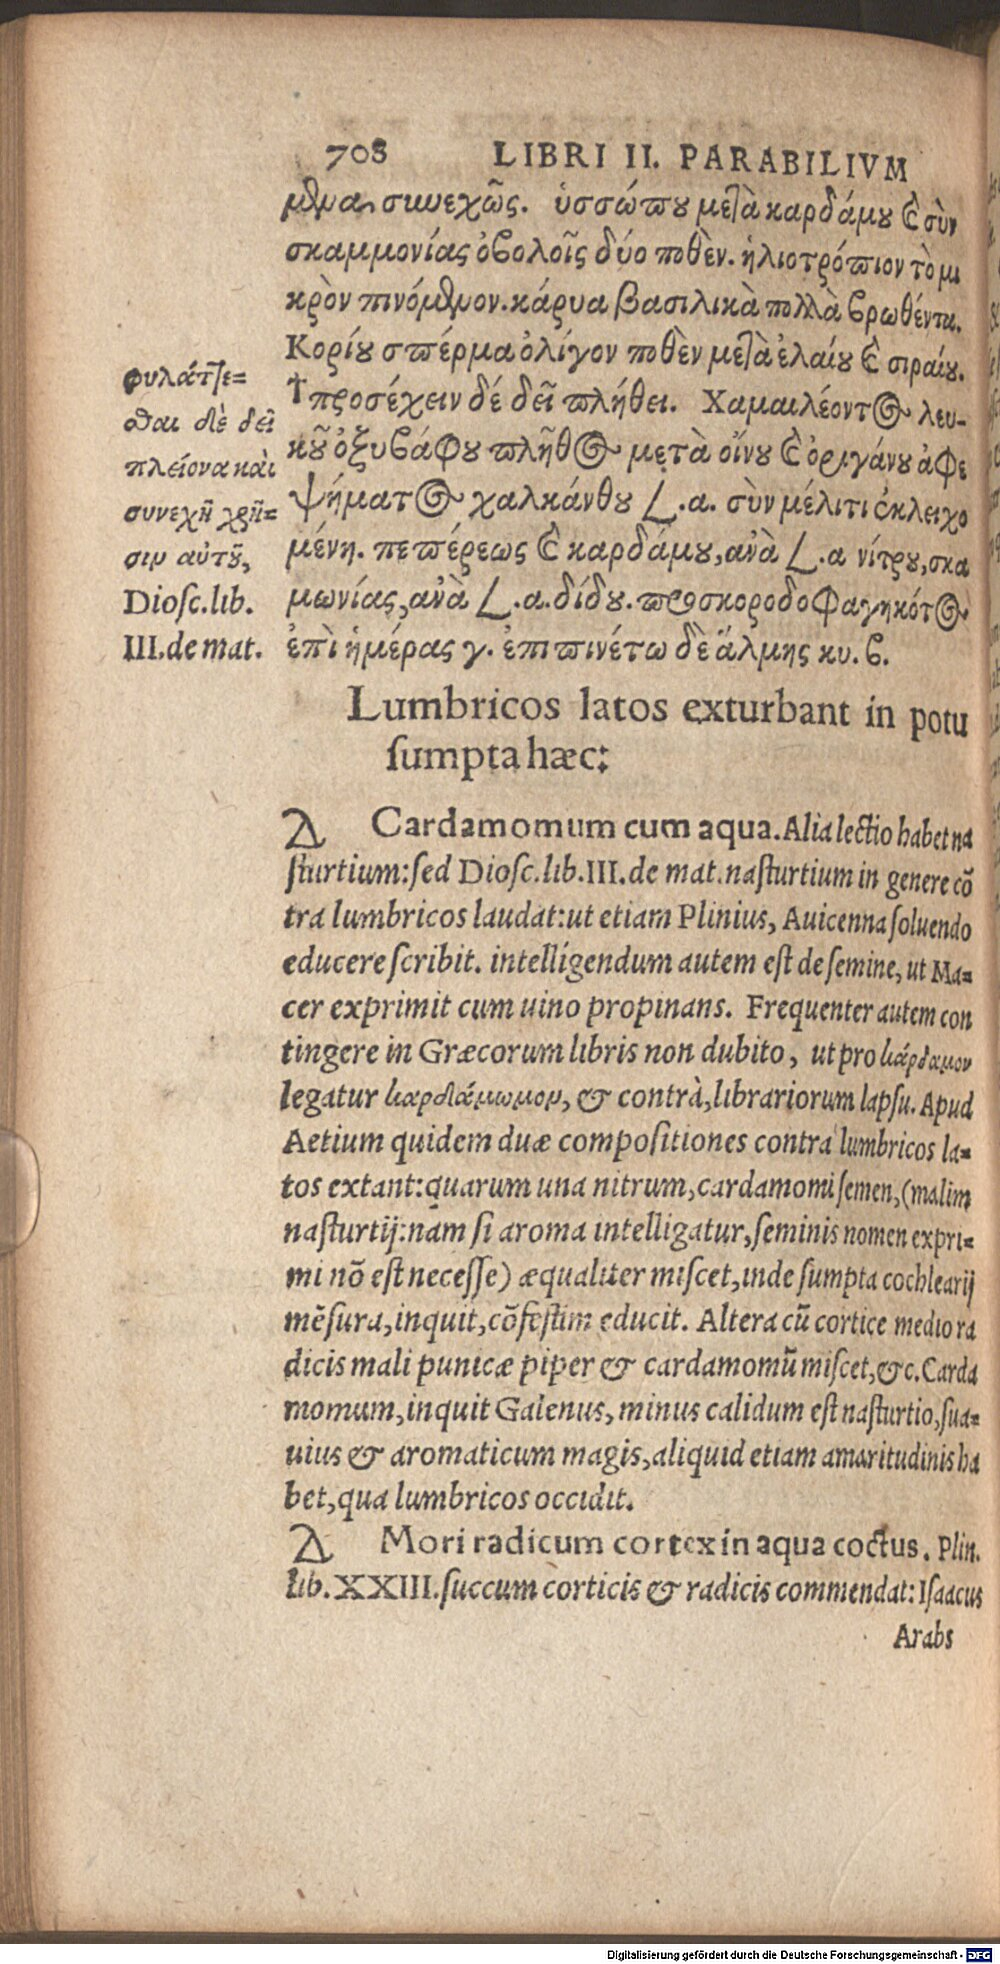 708 LIBRI II. PARABILIVM
μθμα, συνεχῶς. ὑσσώπου μετὰ καρδάμου & σὺν
σκαμμονίας ὀβολοῖς δύο ποθὲν. ἡλιοτρόπιον τὸ μι
κρὸν πινόμενον. κάρυα βασιλικὰ πολλὰ βρωθέντα.
Κορίου σπέρμα ὀλίγον ποθὲν μετὰ ἐλαίου & σιραίου.
†προσέχειν δέ δεῖ πλήθει. Χαμαιλέοντος λευ-
κοῦ ὀξυβάφου πλῆθος μετὰ οἴνου & ὀριγάνου ἀφε
ψήματος χαλκάνθου L.α. σὺν μέλιτι ἐκλειχο
μένη. πεπέρεως & καρδάμου, ανὰ L.α νίτρου, σκα
μωνίας, ανὰ L.α. δίδου. προσκοροδοφαγηκότος
ἐπὶ ἡμέρας γ. ἐπιπινέτω δὲ ἅλμης κυ. β.
φυλάττε=
σθαι δὲ δεῖ
πλείονα καὶ
συνεχῆ χρῆ=
σιν αὐτοῦ,
Diosc. lib.
III. de mat.
Lumbricos latos exturbant in potu
sumpta hæc:
Δ Cardamomum cum aqua. Alia lectio habet na
sturtium: sed Diosc. lib. III. de mat. nasturtium in genere cō
tra lumbricos laudat: ut etiam Plinius, Auicenna soluendo
educere scribit. intelligendum autem est de semine, ut Ma=
cer exprimit cum uino propinans. Frequenter autem con
tingere in Græcorum libris non dubito, ut pro κάρδαμον
legatur καρδιάμωμον, & contrà, librariorum lapsu. Apud
Aetium quidem duæ compositiones contra lumbricos la=
tos extant: quarum una nitrum, cardamomi semen, (malim
nasturtij: nam si aroma intelligatur, seminis nomen expri=
mi nō est necesse) æqualiter miscet, inde sumpta cochlearij
mēsura, inquit, cōfestim educit. Altera cū cortice medio ra
dicis mali punicæ piper & cardamomū miscet, &c. Carda
momum, inquit Galenus, minus calidum est nasturtio, sua=
uius & aromaticum magis, aliquid etiam amaritudinis ha
bet, qua lumbricos occidit.
Δ Mori radicum cortex in aqua coctus. Plin.
lib. XXIII. succum corticis & radicis commendat: Isaacus
Arabs
Digitalisierung gefördert durch die Deutsche Forschungsgemeinschaft - DFG